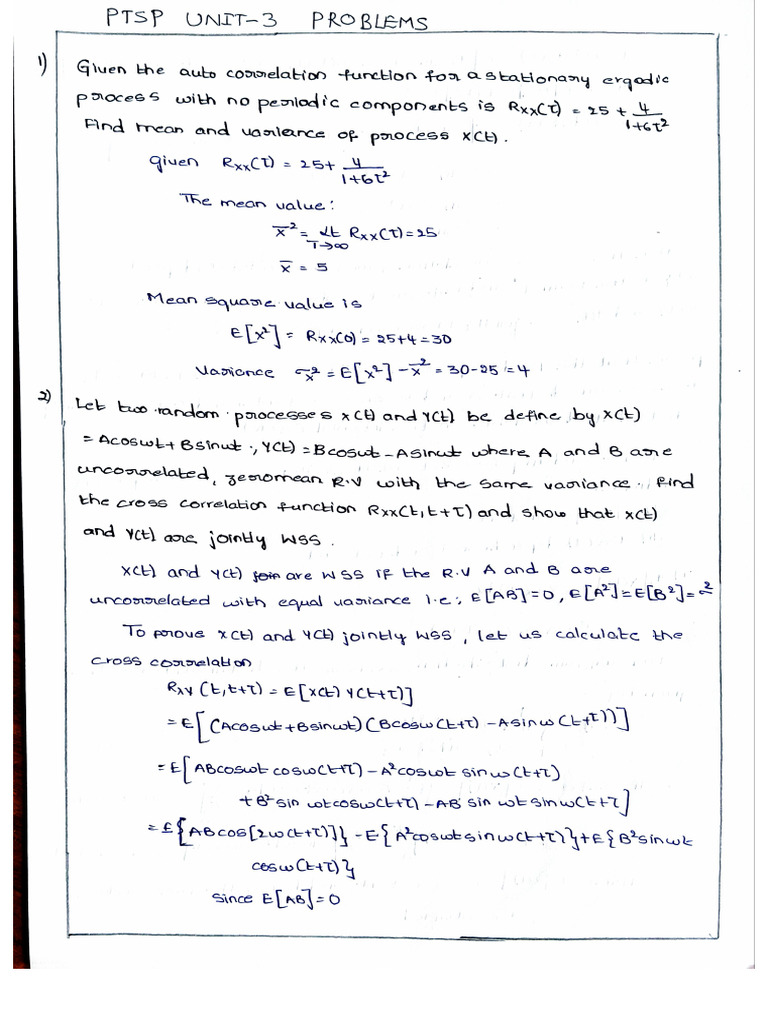 PTSP UNIT-3 PROBLEMS
1) Given the auto correlation function for a stationary ergodic
process with no periodic components is Rxx(τ) = 25 + 4/(1+6τ²)
Find mean and variance of process x(t).
Given Rxx(τ) = 25 + 4/(1+6τ²)
The mean value:
x̄² = Lt T→∞ Rxx(τ) = 25
x̄ = 5
Mean square value is
E[x²] = Rxx(0) = 25+4 = 30
Variance σx² = E[x²] - x̄² = 30-25 = 4
2) Let two random processes x(t) and Y(t) be define by x(t)
= Acosωt + Bsinωt ., Y(t) = Bcosωt - Asinωt where A and B are
uncorrelated, zero mean R.V with the same variance. Find
the cross correlation function Rxx(t, t+τ) and show that x(t)
and Y(t) are jointly WSS.
x(t) and Y(t) join are WSS if the R.V A and B are
uncorrelated with equal variance i.e; E[AB]=0, E[A²]=E[B²]=σ²
To prove x(t) and Y(t) jointly WSS, let us calculate the
cross correlation
Rxy (t, t+τ) = E[x(t) Y(t+τ)]
= E[(Acosωt + Bsinωt) (Bcosω(t+τ) - Asinω(t+τ))]
= E[ABcosωt cosω(t+τ) - A²cosωt sinω(t+τ)
+ B²sin ωt cosω(t+τ) - AB sin ωt sinω(t+τ]
= E{ABcos[2ω(t+τ)]} - E{A²cosωt sinω(t+τ)} + E{B²sinωt
cosω(t+τ)}
Since E[AB]=0